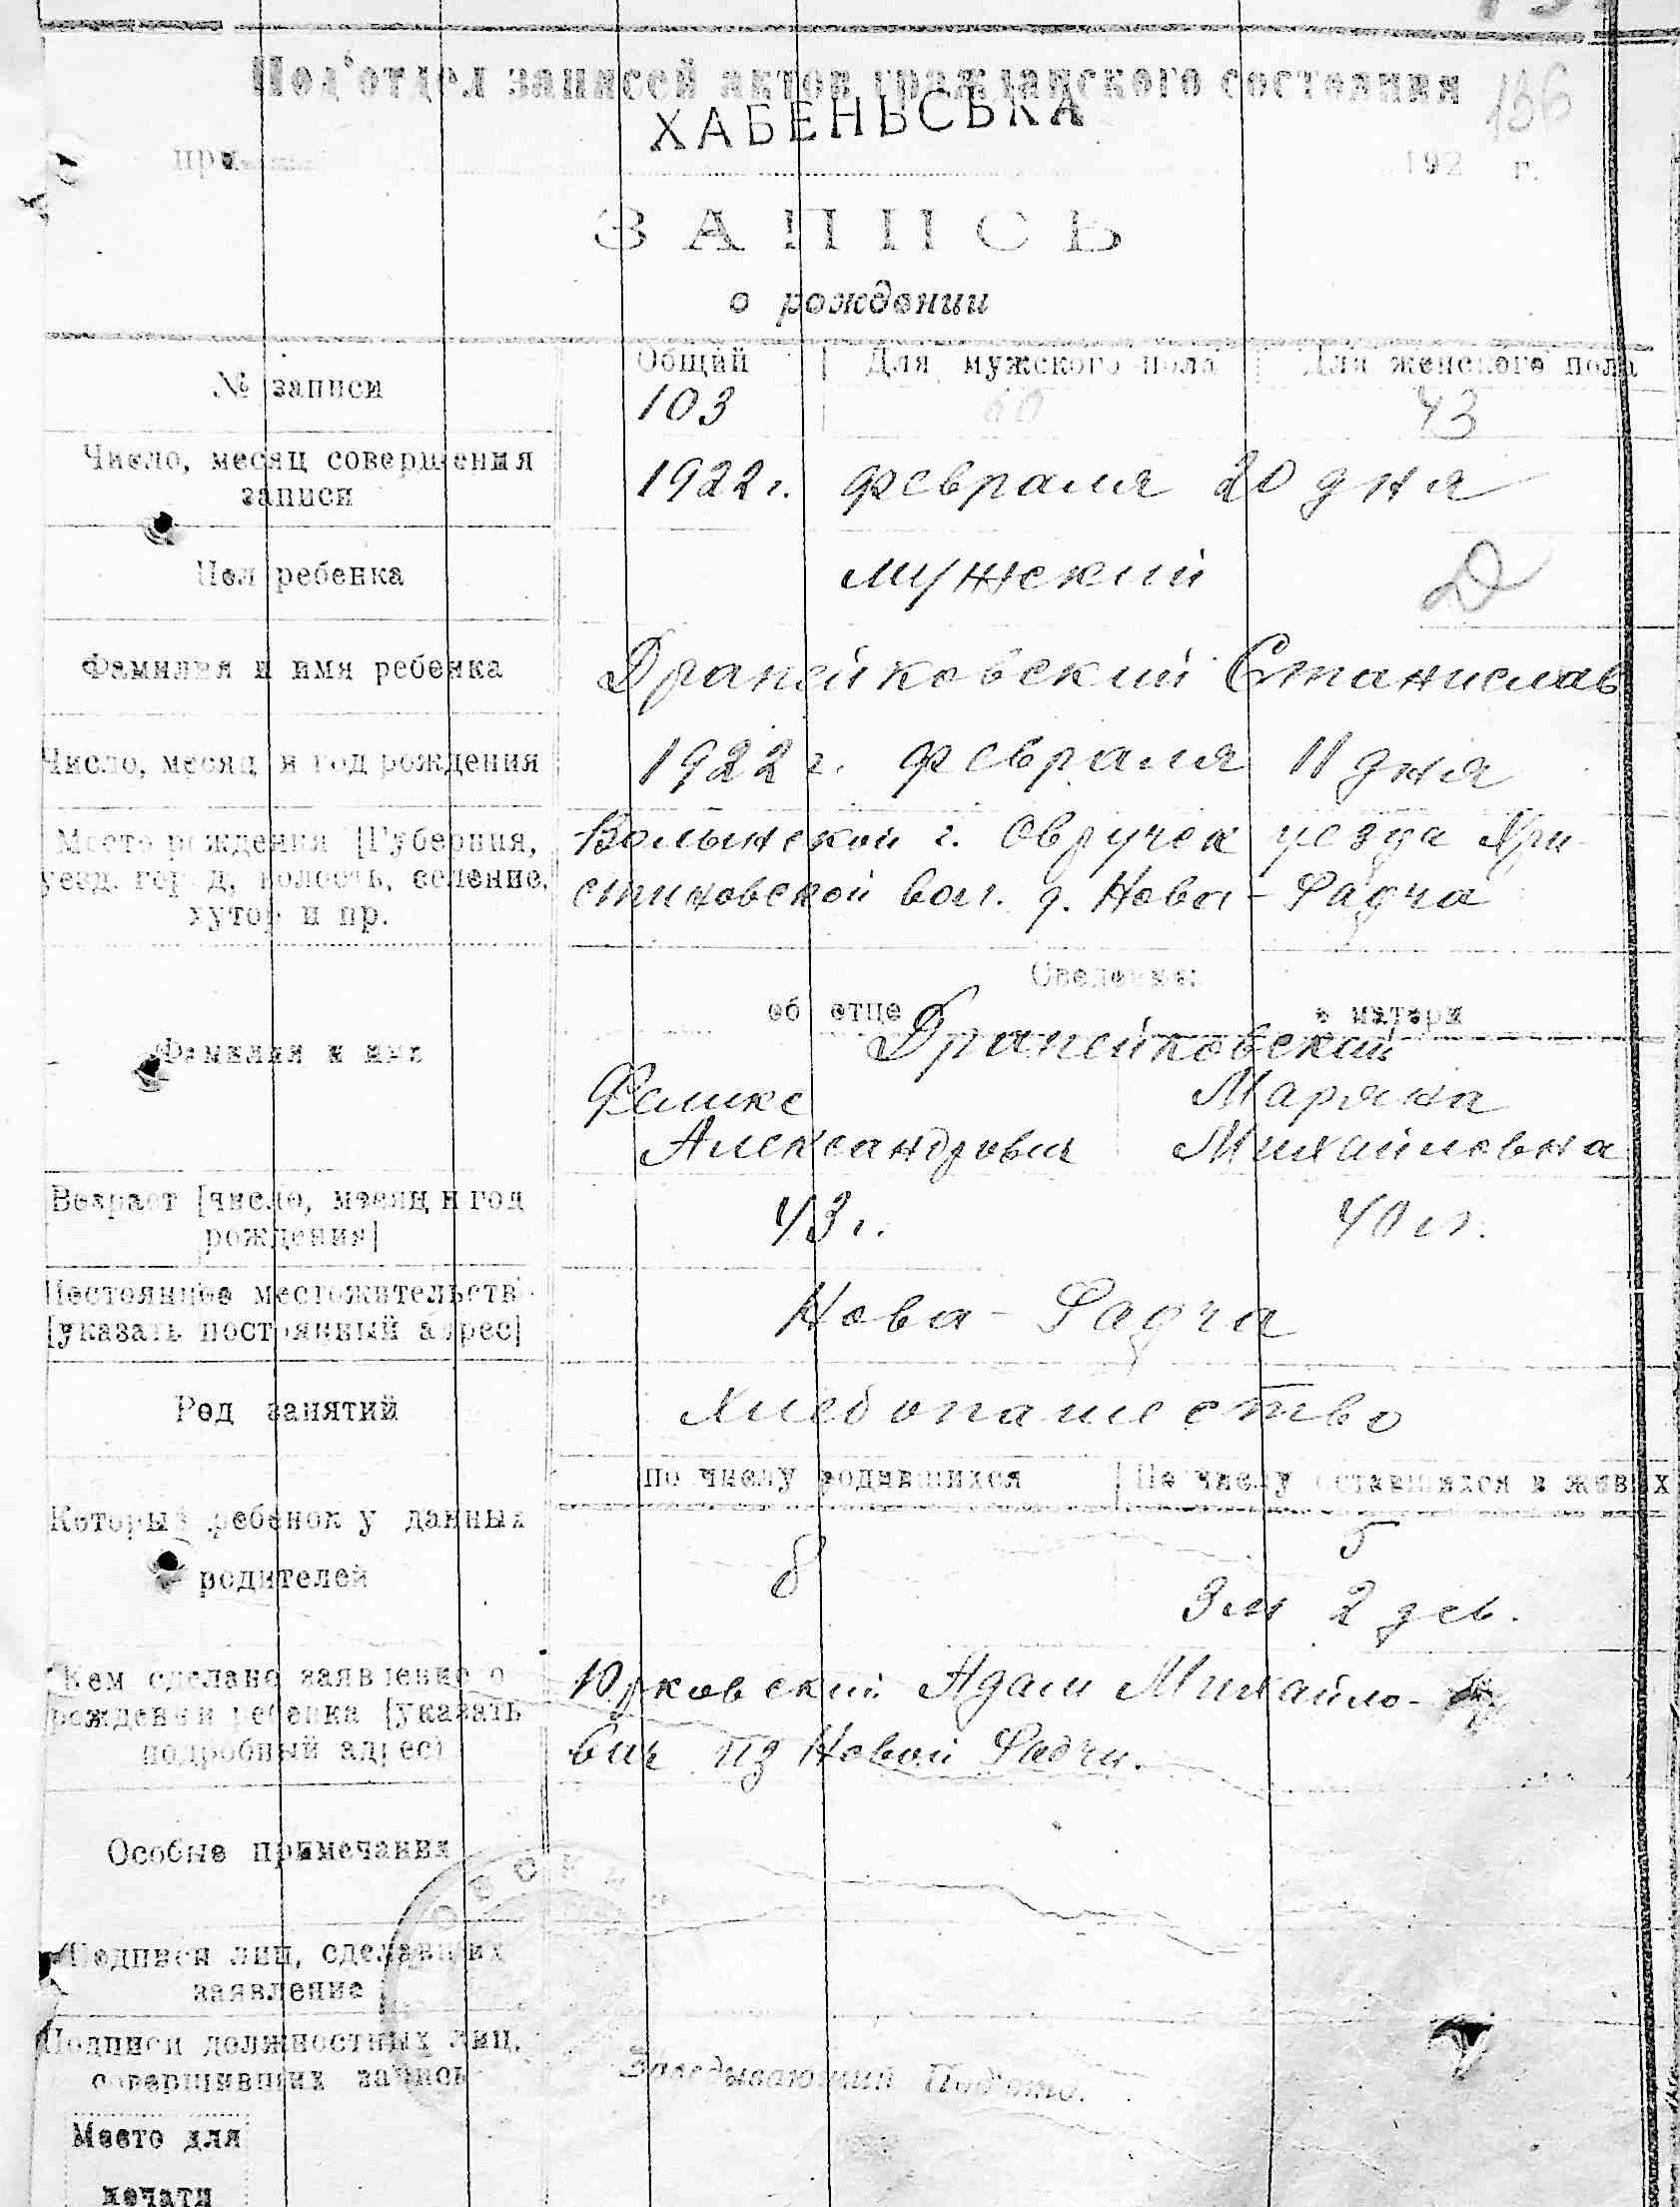 Под'отдел записей актов гражданского состояния
136
ХАБЕНЬСЬКА
при
192 г.
ЗАПИСЬ
о рождении
№ записи
Общий Для мужского пола Для женского пола
103 60 43
Число, месяц совершения записи
1922 г. февраля 20 дня
Пол ребенка
мужский
Д
Фамилия и имя ребенка
Драпейковский Станислав
Число, месяц и год рождения
1922 г. февраля 11 дня
Место рождения [Губерния,
уезд, город, волость, селение,
хутор и пр.
Волынской г. Овручск уезда Хри-
стиновской вол. д. Нова-Радча
Сведения:
об отце о матери
Фамилия и имя
Драпейковский
Феликс Марьяна
Александрович Михайловна
Возраст [число, месяц и год
рождения]
43 г. 40 л.
Постоянное местожительств
[указать постоянный адрес]
Нова-Радча
Род занятий
Хлебопашество
по числу родившихся По числу оставшихся в живых
Который ребенок у данных
родителей
8 5
3 м 2 дев.
Кем сделано заявление о
рождении ребенка [указать
подробный адрес)
Юрковский Адам Михайло-
вич из Новой Радчи.
Особые примечания
Подписи лиц, сделавших
заявление
Подписи должностных лиц,
совершивших запись
Заведывающий Под'отд.
Место для
печати